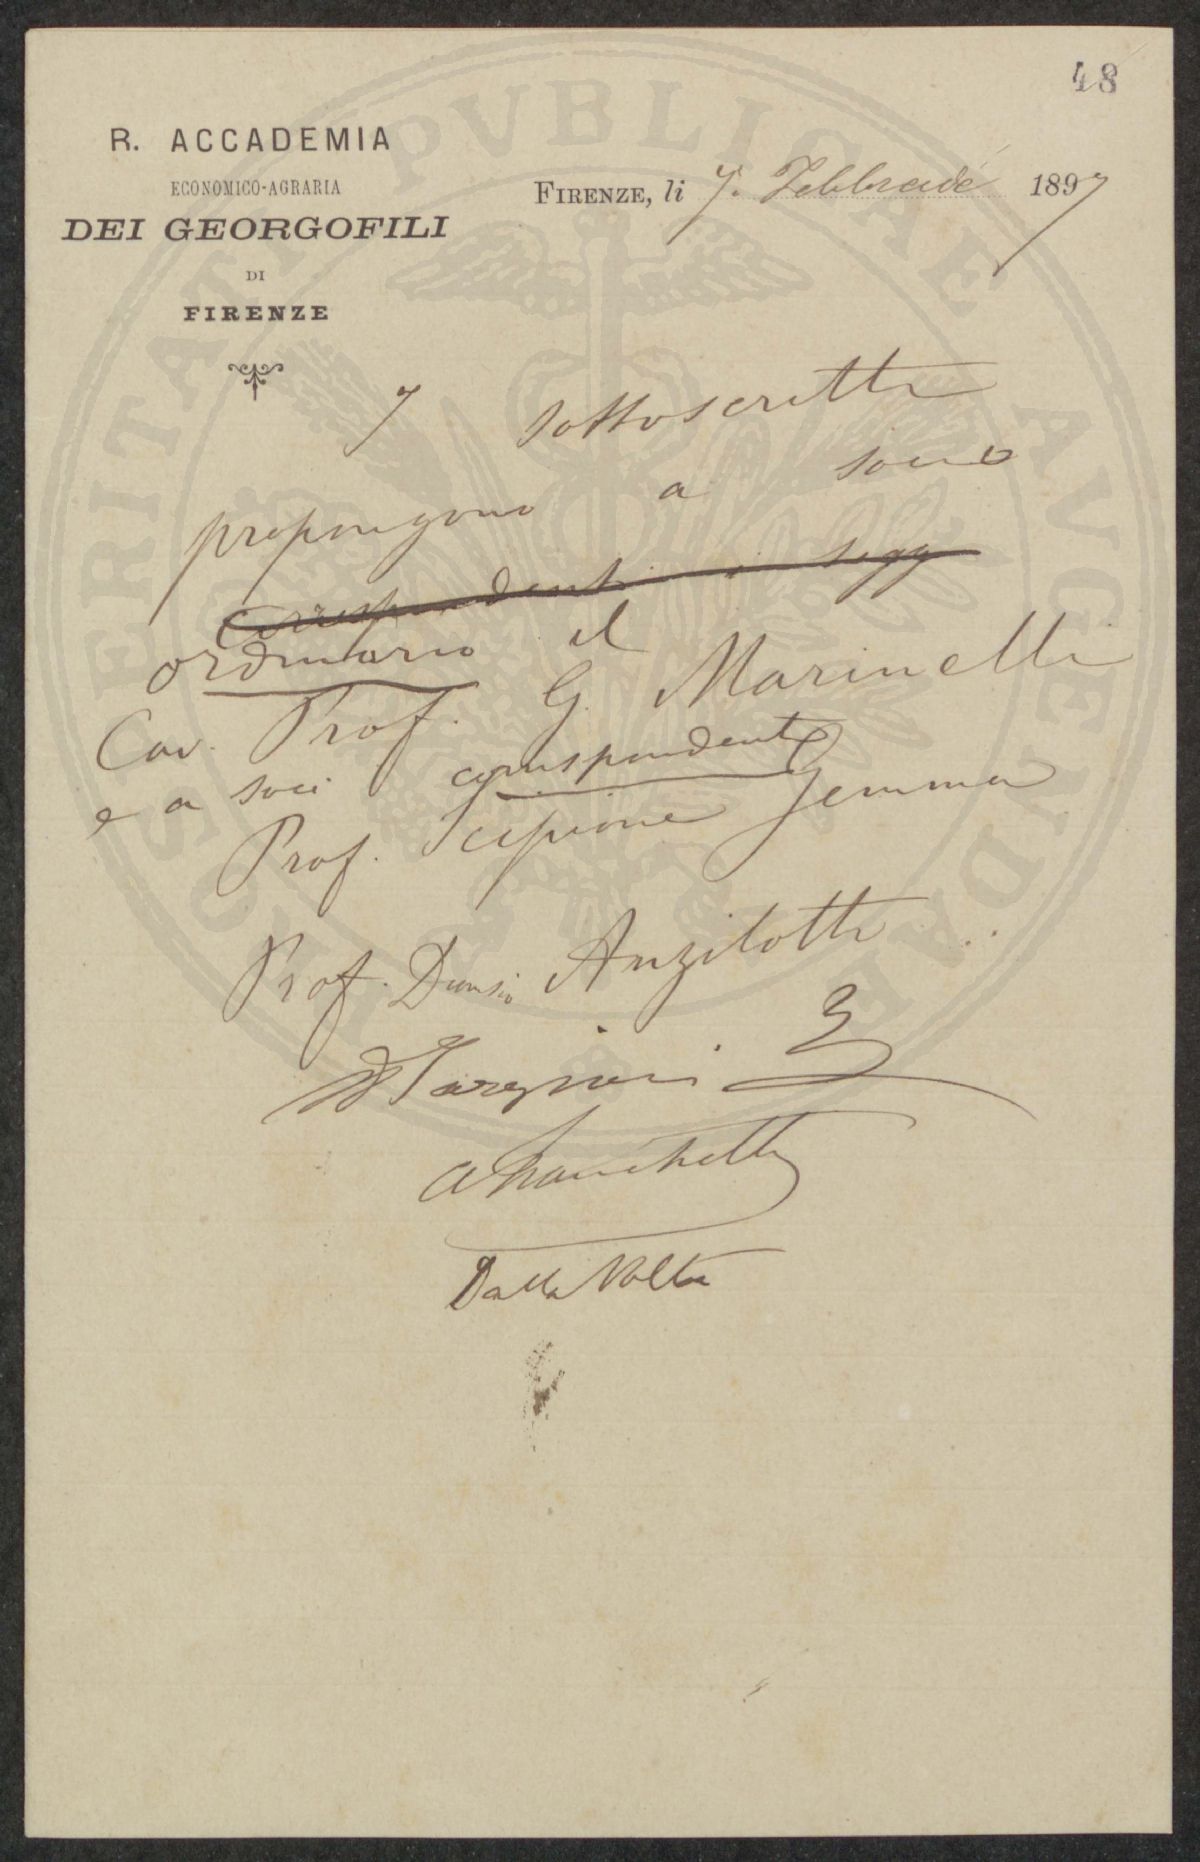 48
R. ACCADEMIA
ECONOMICO-AGRARIA
DEI GEORGOFILI
DI
FIRENZE
FIRENZE, li 7. Febbraio 1897
I sottoscritti
propongono a socio
corrispondenti i sigg
ordinario il
Cav. Prof. G. Marinelli
e a soci corrispondenti
Prof. Scipione Gemma
Prof. Dionisio Anzilotti
Targioni
Dalla Volta